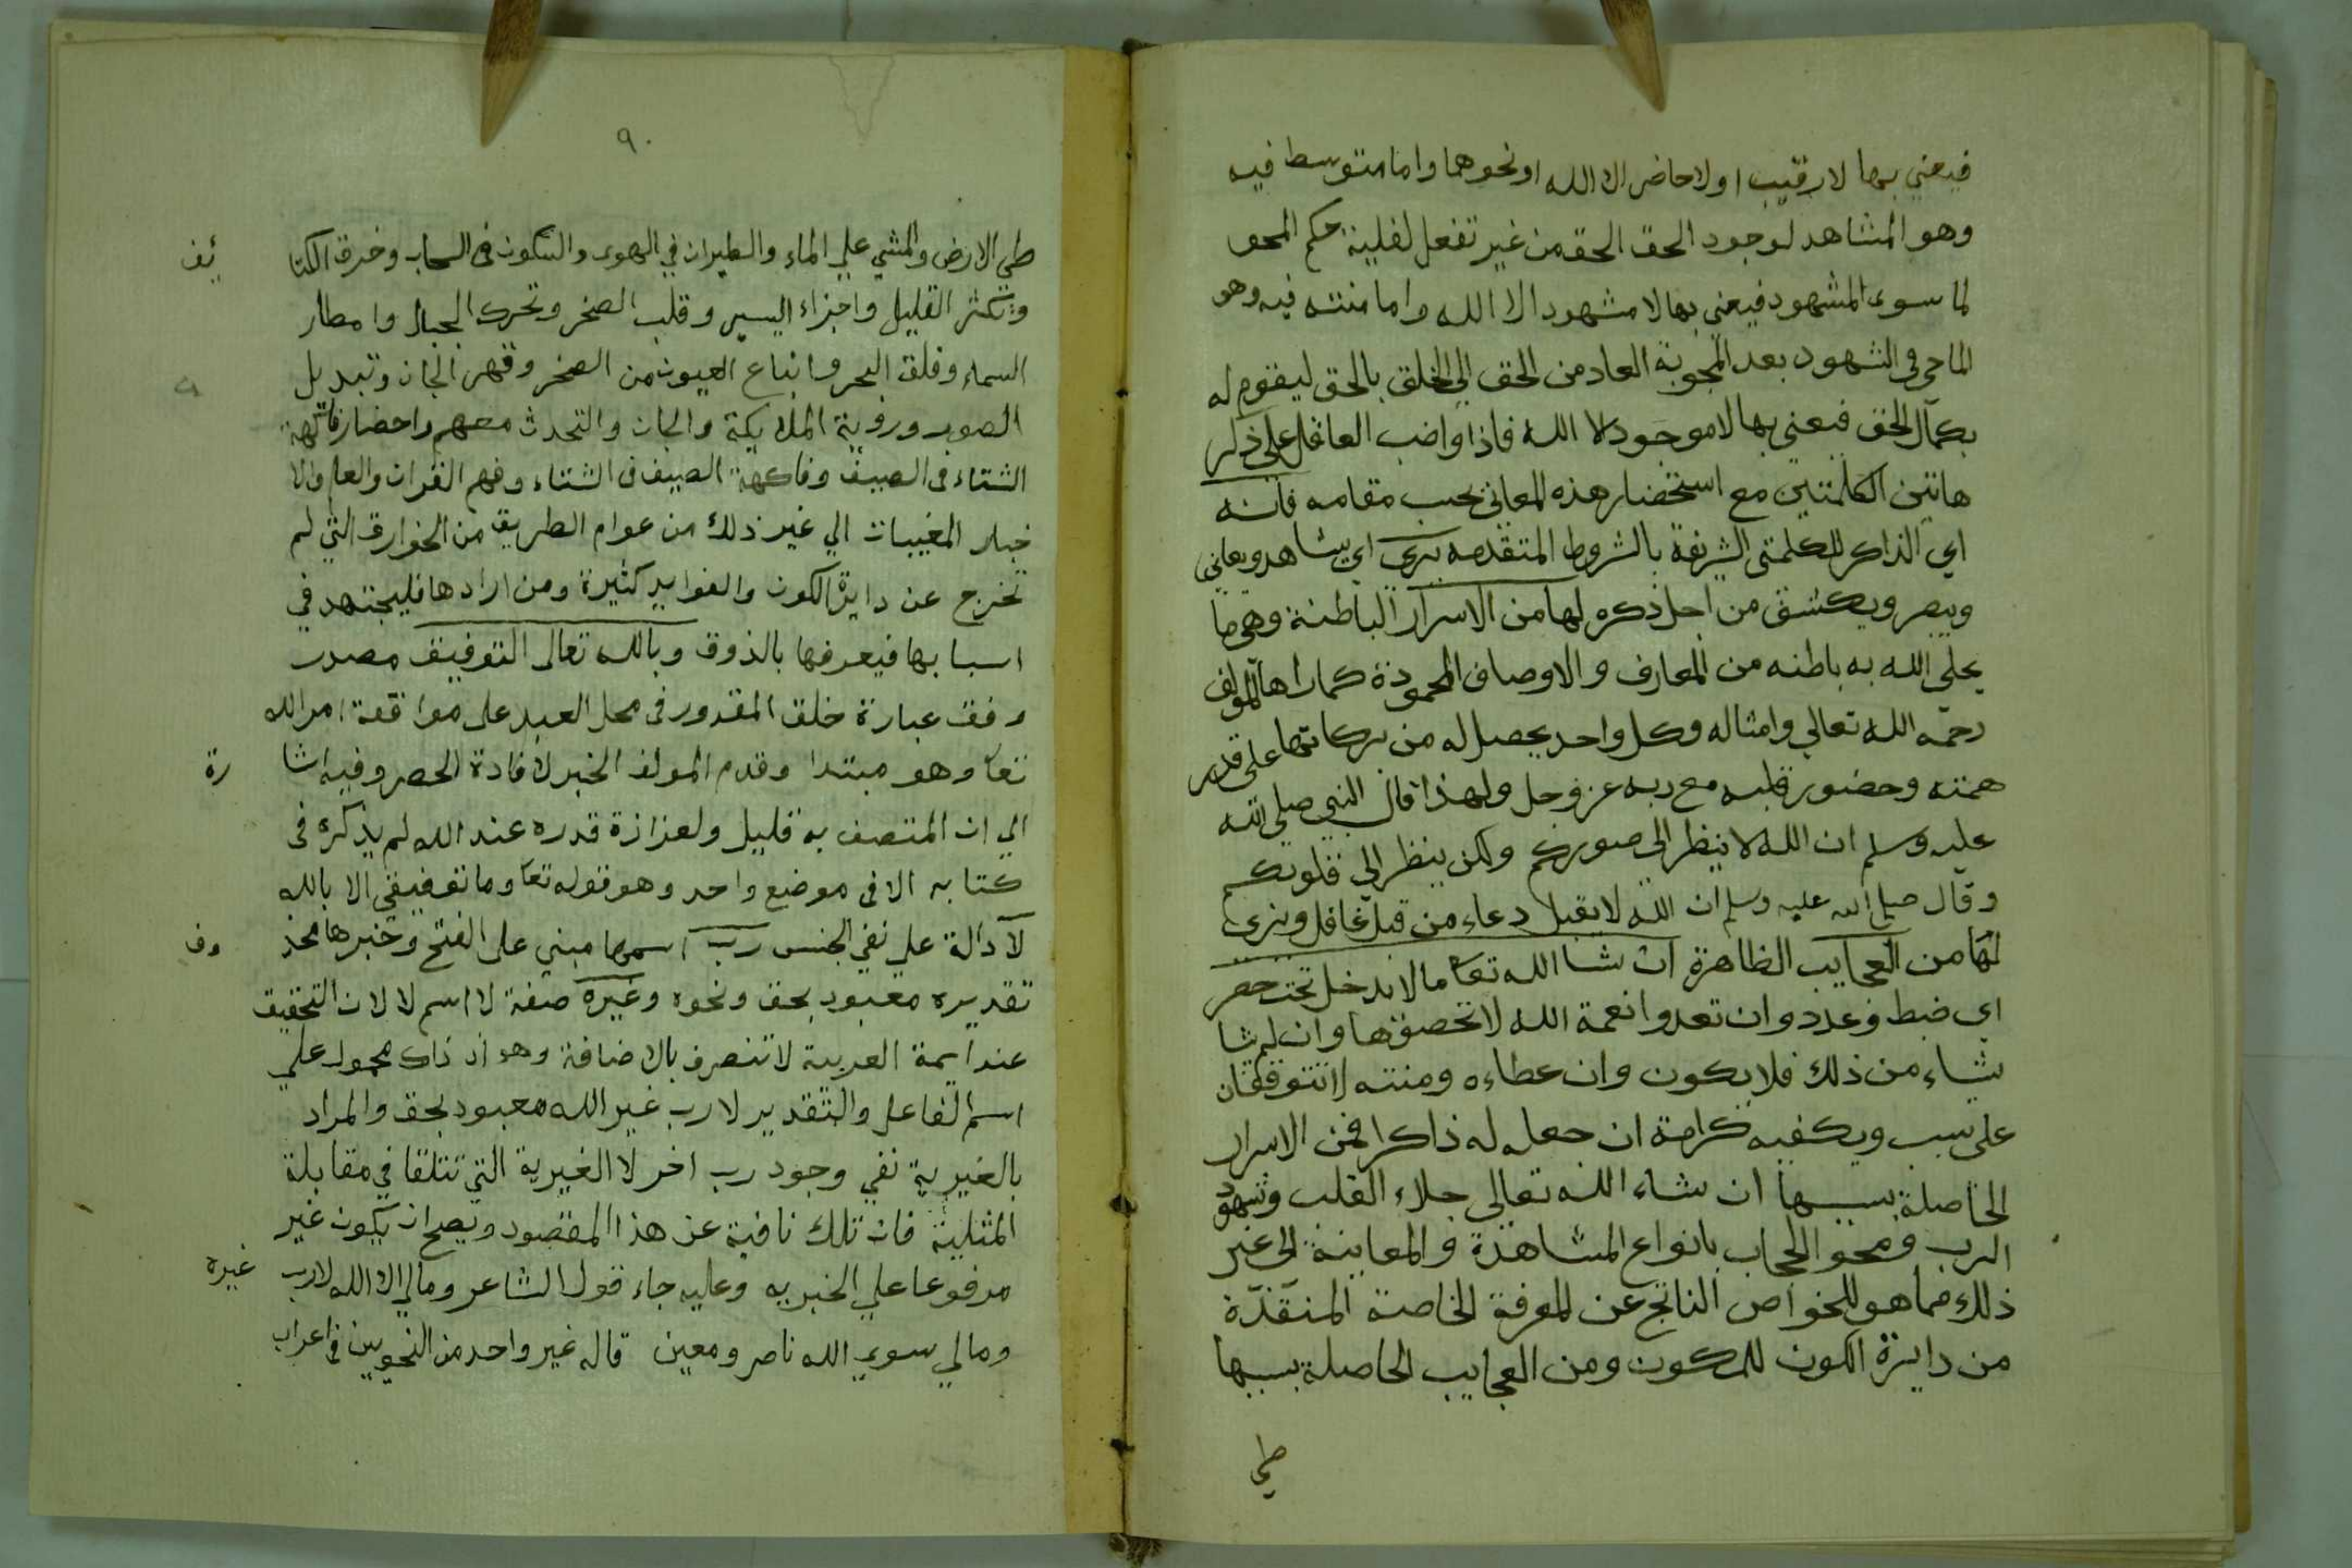 فيعني بها لا رقيب او لا حاضر الا الله او نحوهما واما متوسط فيه
وهو المشاهد لوجود الحق الحق من غير تفعل لغلبة حكم المحو
لما سوى المشهود فيعني بها لا مشهود الا الله واما منته فيه وهو
الماحي في الشهود بعد المحوبة العاد من الحق الي الخلق بالحق ليقوم له
بكمال الحق فيعني بها لا موجود الا الله فاذا واضب العاقل على ذكر
هاتين الكلمتين مع استحضار هذه المعاني بحسب مقامه فانه
اي الذاكر للكلمتي الشريفة بالشروط المتقدمه يرى اي يشاهد ويعاني
ويبصر ويكشف من اجل ذكره لها من الاسرار الباطنة وهي ما
يحلي الله به باطنه من المعارف والاوصاف المحمودة كما راها المولف
رحمه الله تعالي وامثاله وكل واحد يحصل له من بركاتها على قدر
همته وحضور قلبه مع ربه عز وجل ولهذا قال النبي صلي الله
عليه وسلم ان الله لا ينظر الي صوركم ولكن ينظر الي قلوبكم
وقال صلي الله عليه وسلم ان الله لا يقبل دعاء من قبل غافل ويرى
لها من العجايب الظاهرة ان شا الله تعا ما لا يدخل تحت حصر
اي ضبط وعدد وان تعدوا نعمة الله لا تحصوها وان لم يشا
شاء من ذلك فلا يكون وان عطاءه ومنته لا تتوقفان
على سبب ويكفيه كرامة ان جعله له ذاكرا فمن الاسرار
الحاصلة بسببها ان شاء الله تعالي جلاء القلب وشهود
الرب ومحو الحجاب بانواع المشاهدة والمعاينة الي غير
ذلك مما هو للخواص الناتج عن المعرفة الخاصة المنقذة
من دايرة الكون للمكون ومن العجايب الحاصلة بسببها
طي
٩٠
طي الارض والمشي علي الماء والطيران في الهوى والسكون في السحاب وخرق الكثا ئف
وتكثر القليل واجزاء اليسير وقلب الصخر وتحرك الجبال وامطار
السماء وفلق البحر وانباع العيون من الصخر وقهر الجان وتبديل
الصور وروية الملايكة والجان والتحدث معهم واحضار فاكهة
الشتاء في الصيف وفاكهة الصيف في الشتاء وفهم القران والعلم والا
خبار المغيبات الي غير ذلك من عوام الطريق من الخوارق التي لم
تخرج عن دايرة الكون والفوايد كثيرة ومن ارادها فليجتهد في
اسبابها فيعرفها بالذوق وبالله تعالى التوفيق مصدر
وفق عبارة خلق المقدور في محل العبد على موافقة امر الله
تعا وهو مبتدا وقدم المولف الخبر لافادة الحصر وفيه اشا رة
الي ان المتصف به قليل ولعزازة قدره عند الله لم يذكره في
كتابه الا في موضع واحد وهو قوله تعا وما توفيقي الا بالله
لا دالة علي نفي الجنس رب اسمها مبني على الفتح وخبرها محذ وف
تقديره معبود بحق ونحوه وغيره صفة لا اسم لا لان التحقيق
عند ايمة العربية لا تنصرف بالاضافة وهو اذ ذاك محمول علي
اسم الفاعل والتقدير لا رب غير الله معبود بحق والمراد
بالغيرية نفي وجود رب اخر لا الغيرية التي تتلقا في مقابلة
المثلية فان تلك نافية عن هذا المقصود ويصح ان يكون غير
مرفوعا علي الخبريه وعليه جاء قول الشاعر ومالي الا الله لا رب غيره
ومالي سوي الله ناصر ومعين قاله غير واحد من النحويين في اعراب